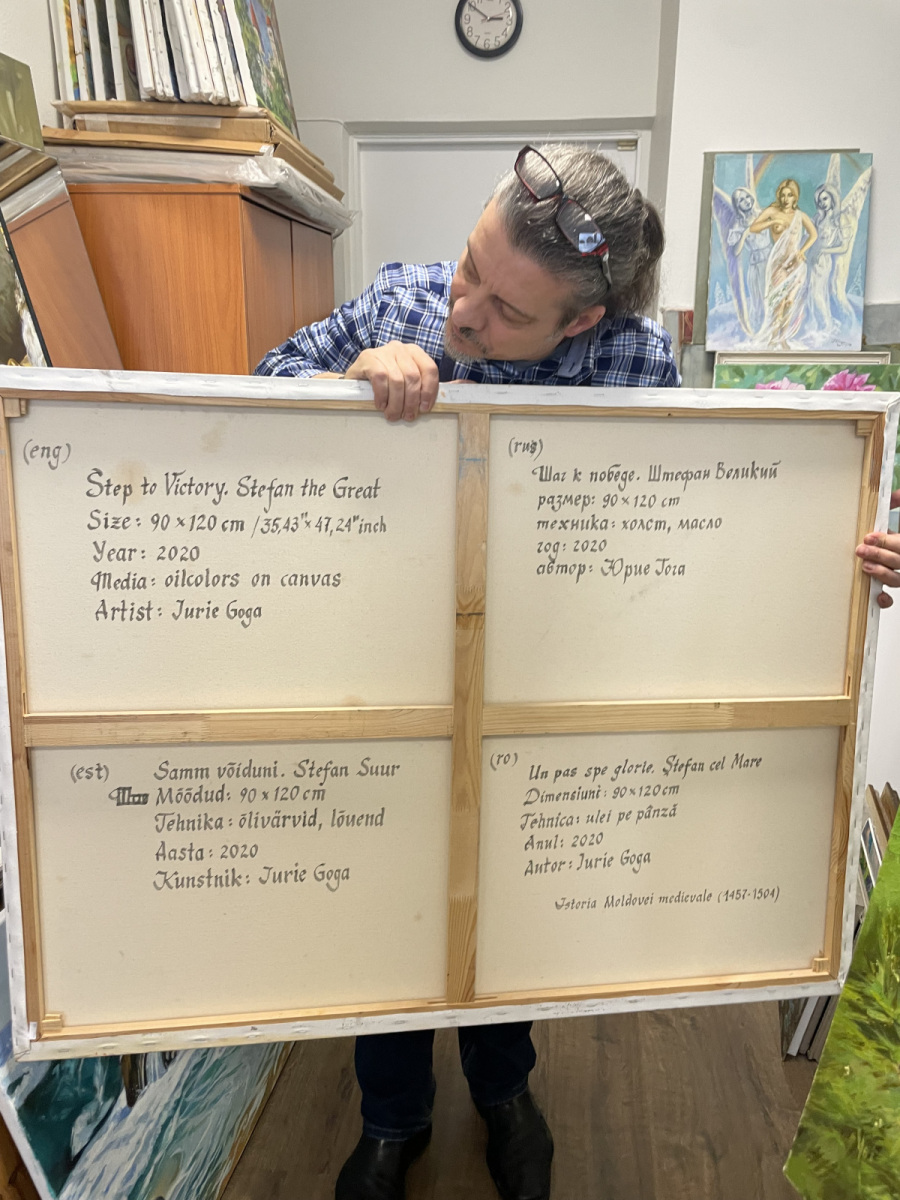 (eng)
Step to Victory. Stefan the Great
Size: 90 x 120 cm / 35,43" x 47,24" inch
Year: 2020
Media: oilcolors on canvas
Artist: Iurie Goga
(rus)
Шаг к победе. Штефан Великий
размер: 90 x 120 cm
техника: холст, масло
год: 2020
автор: Юрие Гога
(est)
Samm võiduni. Stefan Suur
Mõõdud: 90 x 120 cm
Tehnika: õlivärvid, lõuend
Aasta: 2020
Kunstnik: Iurie Goga
(ro)
Un pas spe glorie. Ștefan cel Mare
Dimensiuni: 90 x 120 cm
Tehnica: ulei pe pânză
Anul: 2020
Autor: Iurie Goga
Istoria Moldovei medievale (1457-1504)